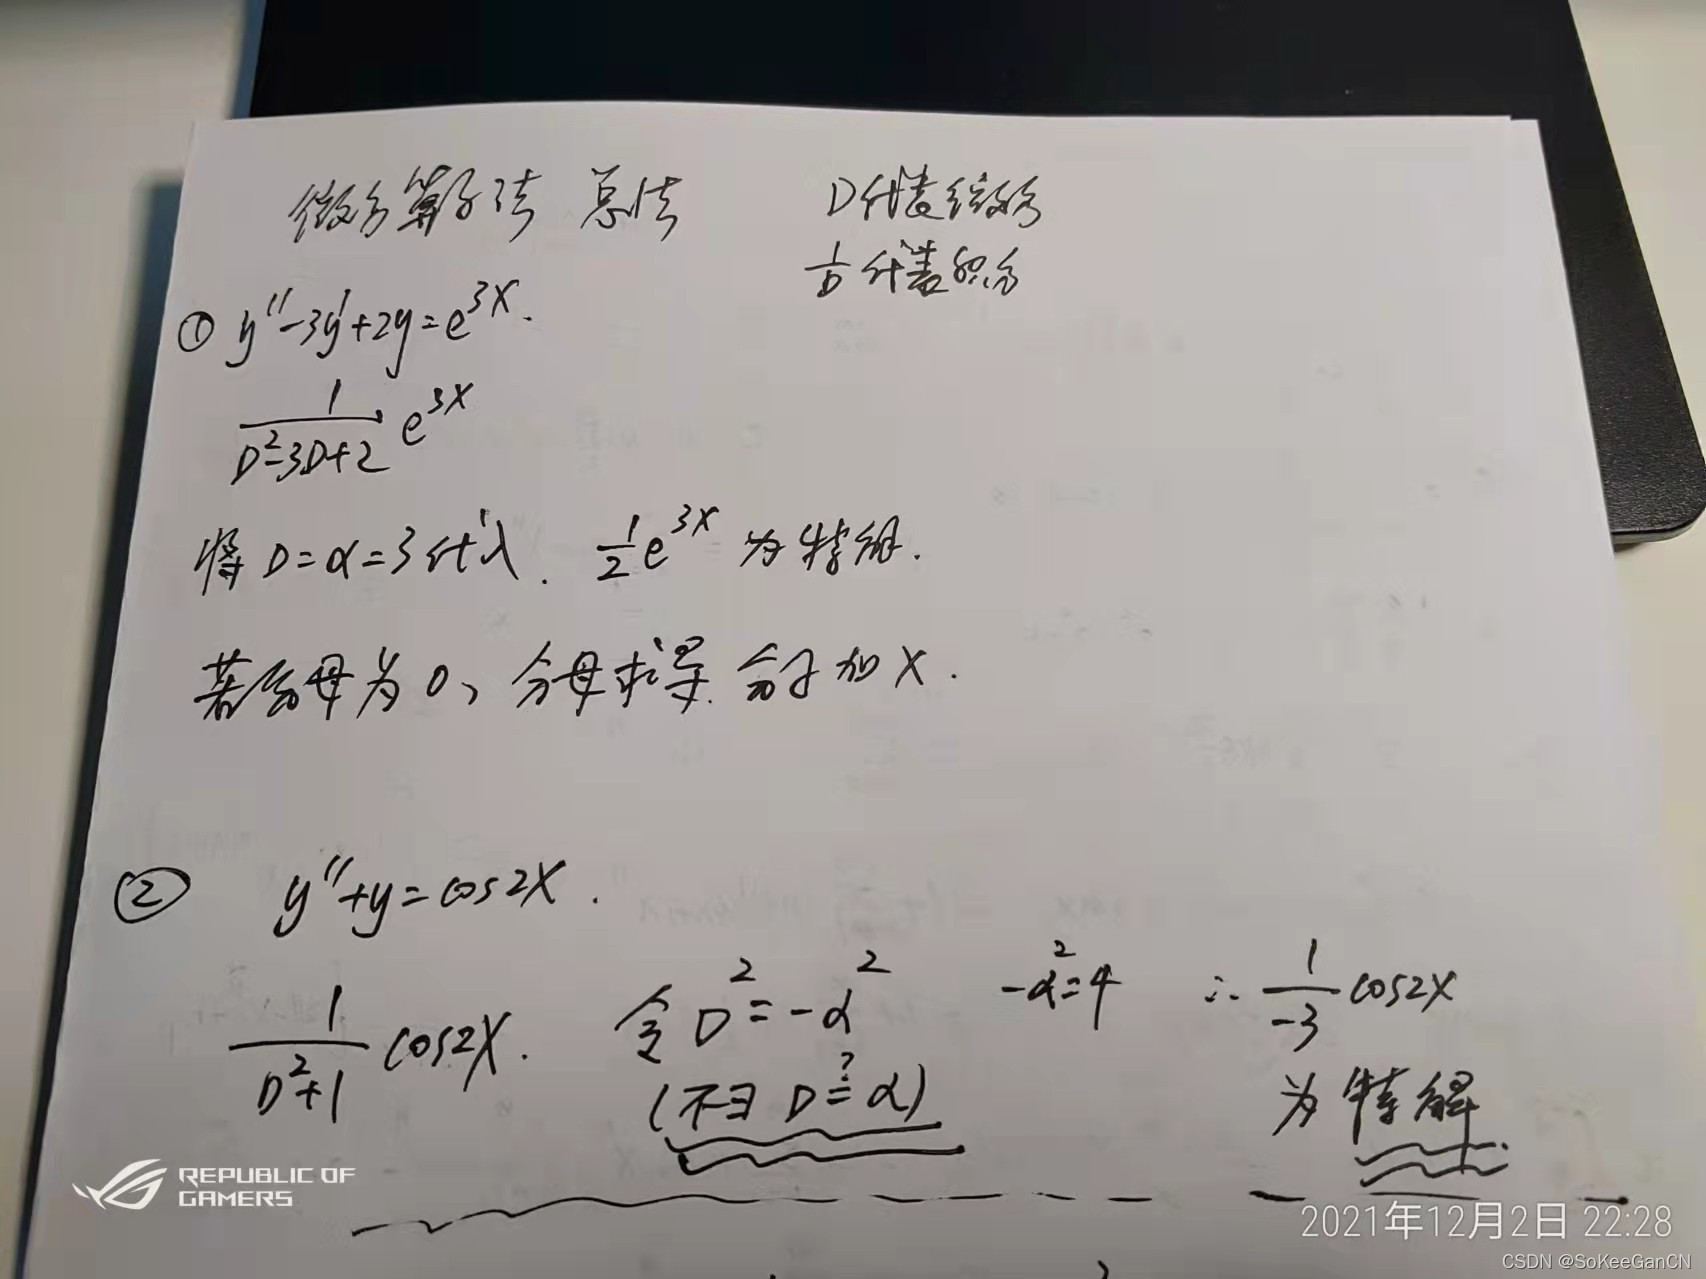 微分算子法 总结
D代表微分
1/D 代表积分
① y''-3y'+2y=e^{3x}.
1/(D²-3D+2) e^{3x}
将 D=α=3 代入. 1/2 e^{3x} 为特解.
若分母为0, 分母求导 分子加 x.
② y''+y=cos2x.
1/(D²+1) cos2x. 令 D²=-α² -α²=4 ∴ 1/-3 cos2x
(不是 D²=α) 为特解
REPUBLIC OF
GAMERS
2021年12月2日 22:28
CSDN @SoKeeGanCN